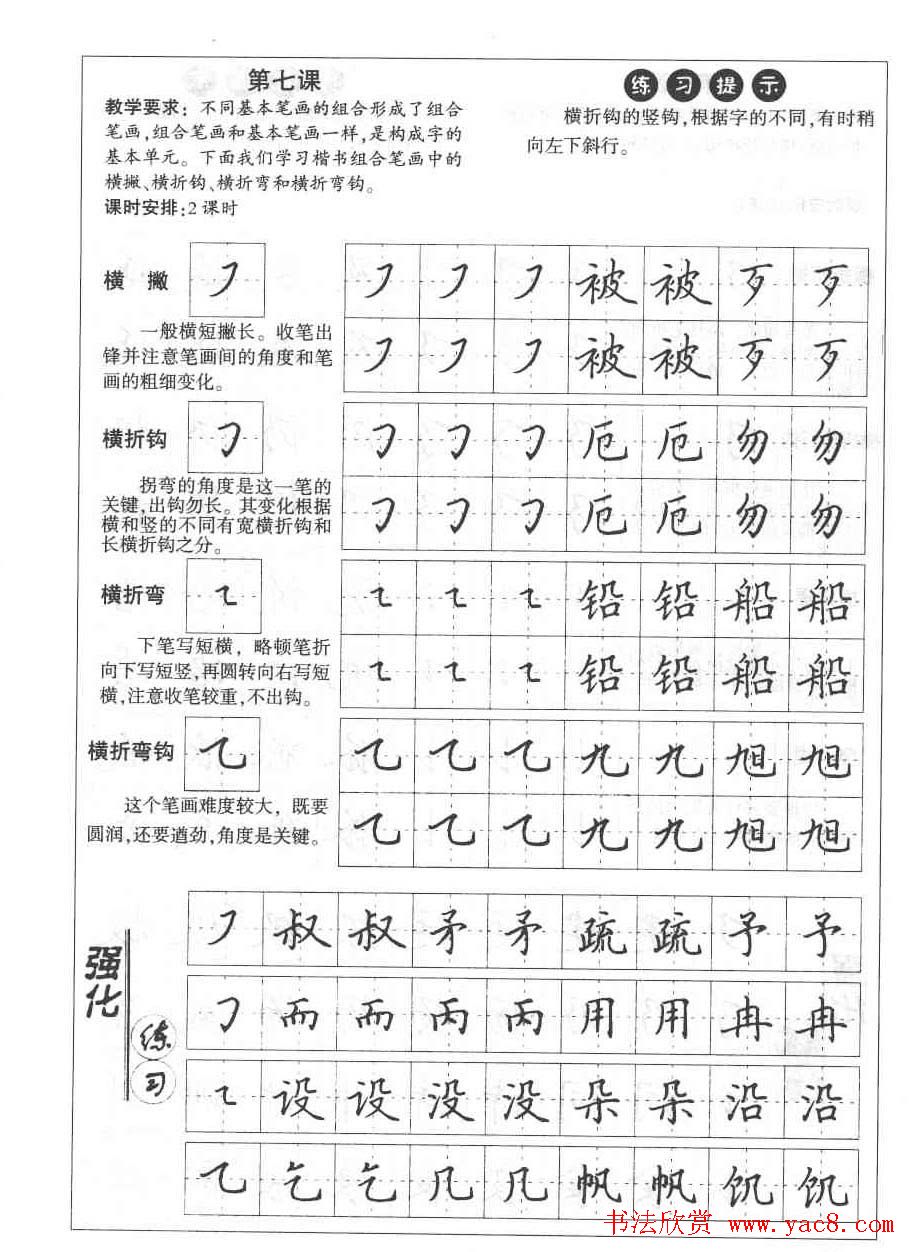 第七课
教学要求：不同基本笔画的组合形成了组合
笔画,组合笔画和基本笔画一样,是构成字的
基本单元。下面我们学习楷书组合笔画中的
横撇、横折钩、横折弯和横折弯钩。
课时安排:2课时
练习提示
横折钩的竖钩,根据字的不同,有时稍
向左下斜行。
横 撇 ㇇
一般横短撇长。收笔出
锋并注意笔画间的角度和笔
画的粗细变化。
㇇ ㇇ ㇇ 被 被 歹 歹
㇇ ㇇ ㇇ 被 被 歹 歹
横折钩 ㇆
拐弯的角度是这一笔的
关键,出钩勿长。其变化根据
横和竖的不同有宽横折钩和
长横折钩之分。
㇆ ㇆ ㇆ 厄 厄 勿 勿
㇆ ㇆ ㇆ 厄 厄 勿 勿
横折弯 ㇍
下笔写短横，略顿笔折
向下写短竖,再圆转向右写短
横,注意收笔较重,不出钩。
㇍ ㇍ ㇍ 铅 铅 船 船
㇍ ㇍ ㇍ 铅 铅 船 船
横折弯钩 ⺄
这个笔画难度较大，既要
圆润,还要遒劲,角度是关键。
⺄ ⺄ ⺄ 九 九 旭 旭
⺄ ⺄ ⺄ 九 九 旭 旭
强化
练习
㇇ 叔 叔 矛 矛 疏 疏 予 予
㇆ 而 而 丙 丙 用 用 冉 冉
㇍ 设 设 没 没 朵 朵 沿 沿
⺄ 乞 乞 凡 凡 帆 帆 饥 饥
书法欣赏 www.yac8.com